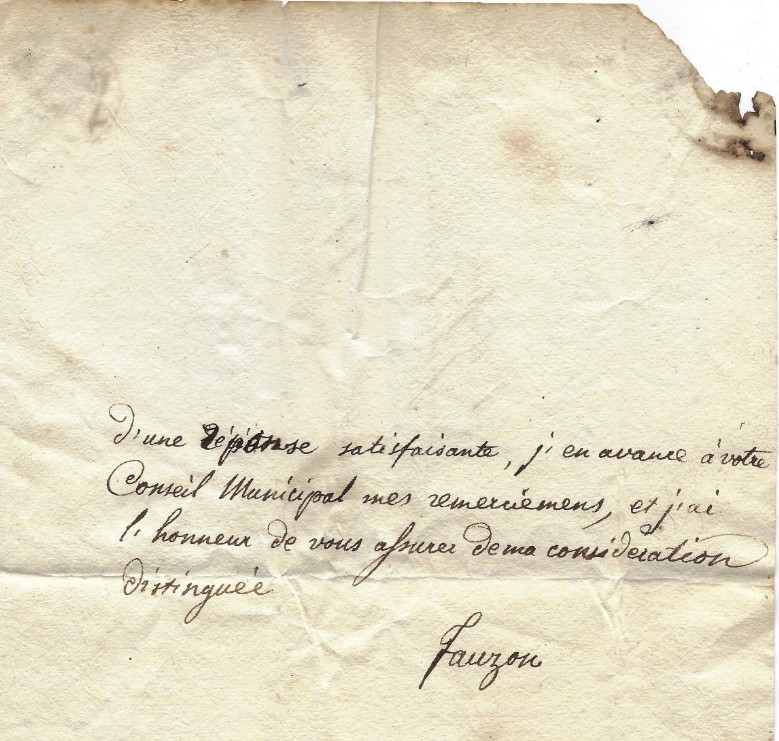 d'une réponse satisfaisante, j'en avance à votre
Conseil Municipal mes remerciemens, et j'ai
l'honneur de vous assurer de ma considération
distinguée
Fauzon